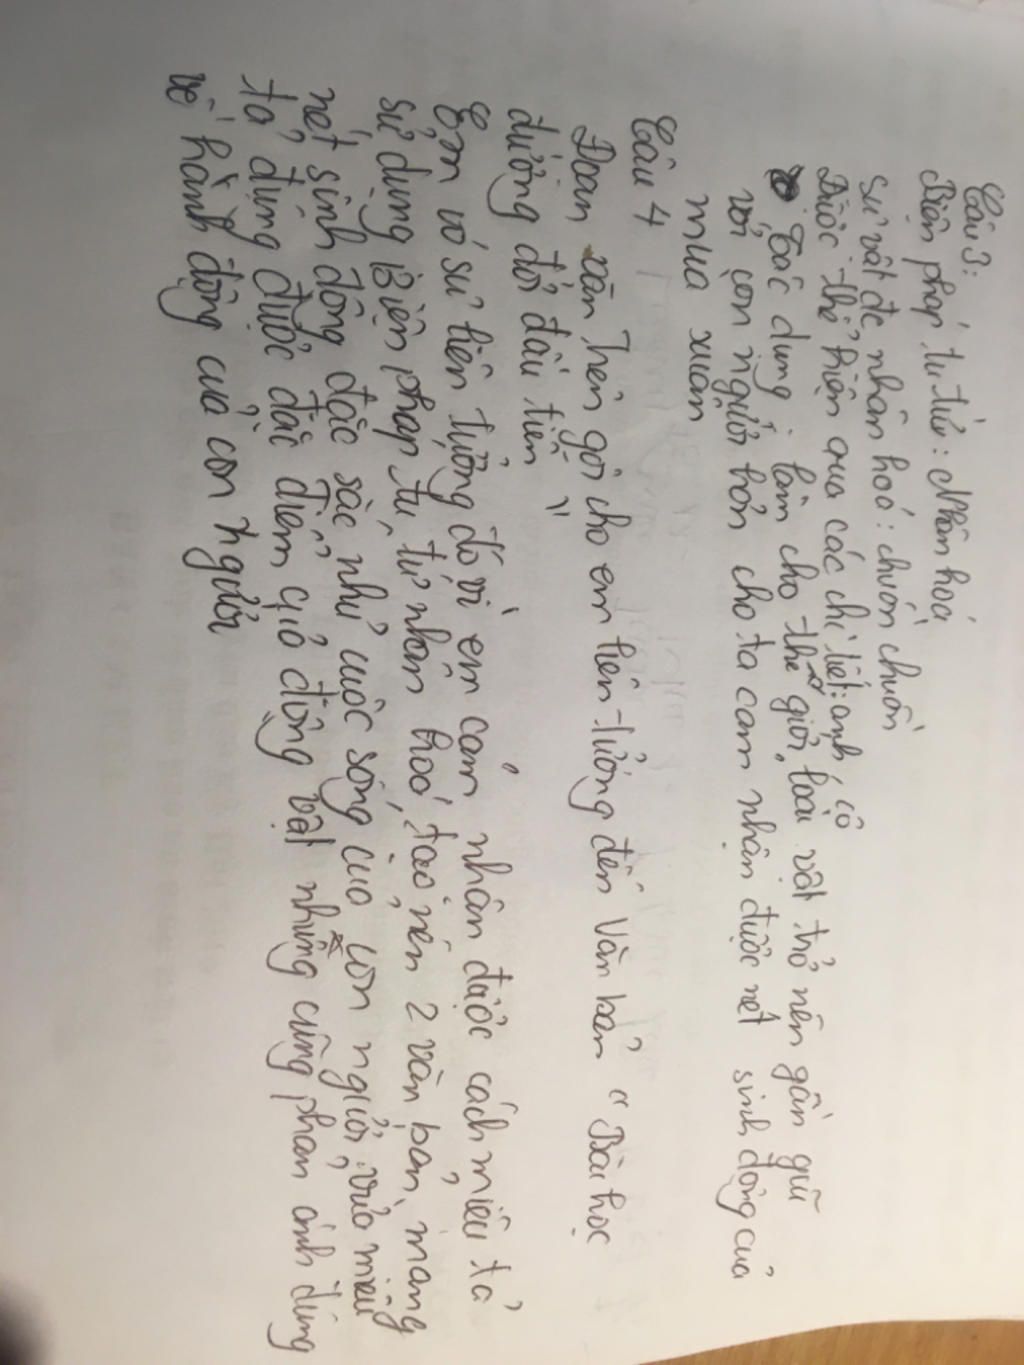 Câu 3:
Biện pháp tu từ: Nhân hoá
Sự vật đc nhân hoá: chuồn chuồn
Được thể hiện qua các chi tiết: anh, cô
Tác dụng: làm cho thế giới loài vật trở nên gần gũi
với con người hơn cho ta cảm nhận được nét sinh động của
mùa xuân
Câu 4
Đoạn văn trên gợi cho em liên tưởng đến văn bản "Bài học
đường đời đầu tiên"
Em có sự liên tưởng đó vì em cảm nhận được cách miêu tả
sử dụng biện pháp tu từ nhân hoá, tạo nên 2 văn bản, mang
nét sinh động đặc sắc như cuộc sống của con người, vừa miêu
tả đúng được đặc điểm của động vật nhưng cũng phản ánh đúng
về hành động của con người